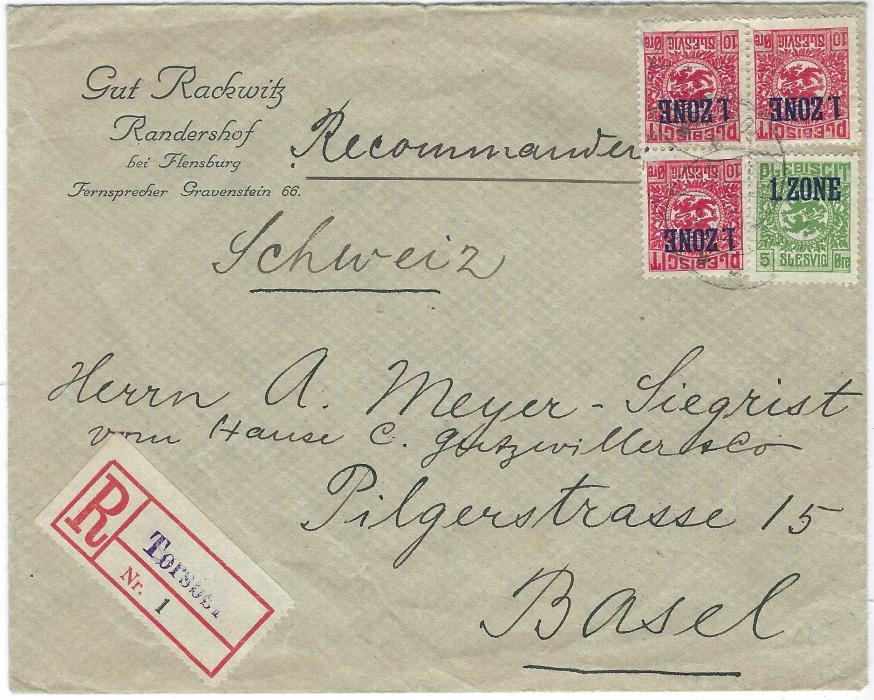 Gut Rackwitz
Randershof
bei Flensburg
Fernsprecher Gravenstein 66.
Recommander
Schweiz
10 SLESVIG Øre
1. ZONE
PLEBISCIT
10 SLESVIG Øre
1. ZONE
PLEBISCIT
10 SLESVIG Øre
1. ZONE
PLEBISCIT
PLEBISCIT
1. ZONE
5 SLESVIG Øre
Herrn A. Meyer-Siegrist
vom Hause C. Gutzwiller & Co
Pilgerstrasse 15
Basel
R
Nr. 1